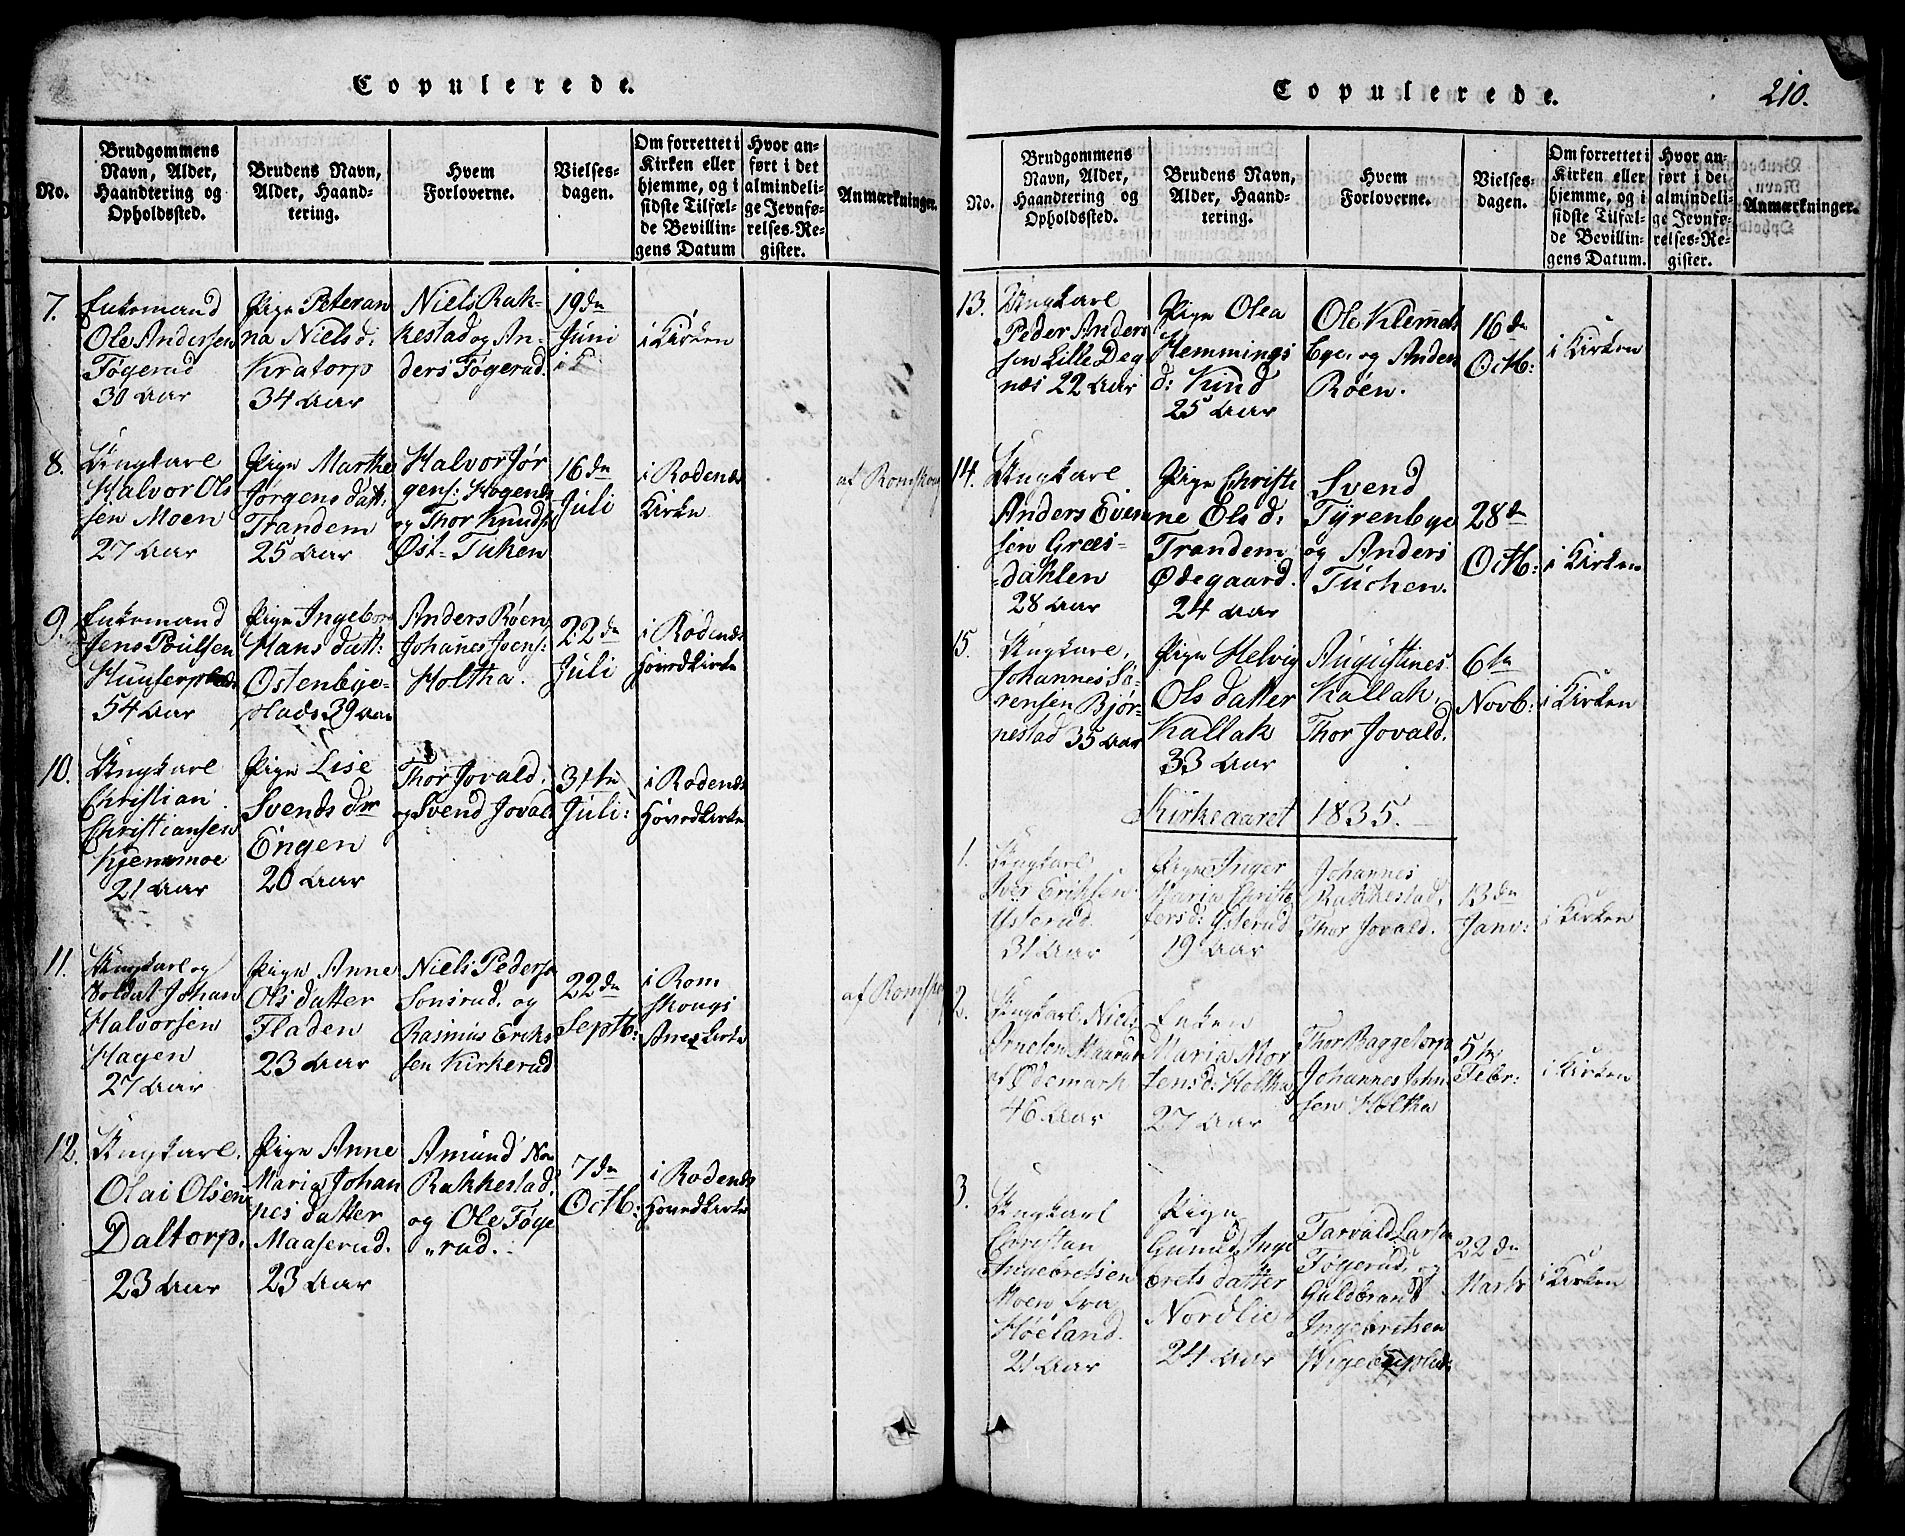 Copulerede.
No.
Brudgommens
Navn, Alder,
Haandtering og
Opholdssted.
Brudens Navn,
Alder, Haand-
tering.
Hvem
Forloverne.
Vielses-
dagen.
Om forrettet i
Kirken eller
hjemme, og i
sidste Tilfæl-
de Bevillin-
gens Datum
Hvor an-
ført i det
almindeli-
ge Jevnfø-
relses-Re-
gister.
Anmærkninger.
7.
Enkemand
Ole Andersen
Føgerud
30 Aar
Pige Peteran
na Niels d:
Kratorp
34 Aar
Niels Rak-
kestad og An-
ders Føgerud.
19de
Juni
i Kirken
8.
Ungkarl
Halvor Ols
sen Moen
27 Aar
Pige Marthe
Jørgens datt:
Trandem
25 Aar
Halvor Jør
gens: Hogends
og Thor Knuds
Øst-Tuken
16de
Juli
i Rodenes
Kirke
af Romskog
9.
Enkemand
Jens Poulsen
54 Aar
Pige Ingebor
Hans datt:
Ostenbye-
plads 39 Aar
Anders Røen
Johanes Joens:
Holtha.
22de
Juli
i Rodenes
Hovedkirke
10.
Ungkarl
Christian
Christiansen
Kjemmoe
21 Aar
Pige Lise
Svends dtr
Engen
20 Aar
Thor Jovald.
og Svend Jovald
31te
Juli:
i Rodenes
Hovedkirke
11.
Ungkarl og
Soldat Johan
Halvorsen
Hagen
27 Aar
Pige Anne
Ols datter
Fladen
23 Aar
Niels Peders
Sonsrud, og
Rasmus Eriks
sen Kirkerud
22de
Septb:
i Rom
skougs
Anexkirke
af Romskog
12.
Ungkarl.
Olai Olsen
Daltorp.
23 Aar
Pige Anne
Maria Johan
nes datter
Maaserud.
23 Aar
Amund
Rakkestad.
og Ole Føge
"rud.
7de
Octb:
i Rodenes
Hovedkirke
Copulerede.
210.
No.
Brudgommens
Navn, Alder,
Haandtering og
Opholdssted.
Brudens Navn,
Alder, Haand-
tering.
Hvem
Forloverne.
Vielses-
dagen.
Om forrettet i
Kirken eller
hjemme, og i
sidste Tilfæl-
de Bevillin-
gens Datum.
Hvor an-
ført i det
almindeli-
ge Jevnfø-
relses-Re-
gister.
Anmærkninger.
13.
Ungkarl
Peder Anders
sen Lille Deg
næs 22 Aar
Pige Olea
Hemmings
d: Kind
25 Aar
Ole Klemmets
Bye, og Anders
Røen.
16de
Octb:
i Kirken
14.
Ungkarl
Anders Even
sen Græs-
-dahlen
28 Aar
Pige Christi
ne Ols d:
Trandem
Ødegaard.
24 Aar
Svend
Tyrenbye
og Anders
Tuchen.
28de
Octb:
i Kirken
15.
Ungkarl,
Johannes Sø-
rensen Bjør-
nestad 35 Aar
Pige Helvig
Ols datter
Kallak
33 Aar
Augustines
Kallak,
Thor Jovald.
6te
Novb:
i Kirken
Kirkeaaret 1835.
1.
Ungkarl
Iver Eriksen
Ysterud
31 Aar
Pige Inger
Maria Christo
fersd: Ysterud
19 Aar
Johannes
Rakkestad.
Thor Jovald.
13de
Janv:
i Kirken
2.
Ungkarl Niels
Arnesen
af Ødemark
46 Aar
Enken
Maria Mor
tensd: Holtha
27 Aar
Thor Baggetorp
Johannes John
sen Holtha
5te
Febr:
i Kirken
3.
Ungkarl
Christian
Ingebretsen
Moen fra
Høeland.
21 Aar
Pige
Gunild Inge
brets datter
Nordlie
24 Aar
Tarvald Larsen
Føgerud, og
Guldbrand
Ingebretsen
22de
Marts
i Kirken